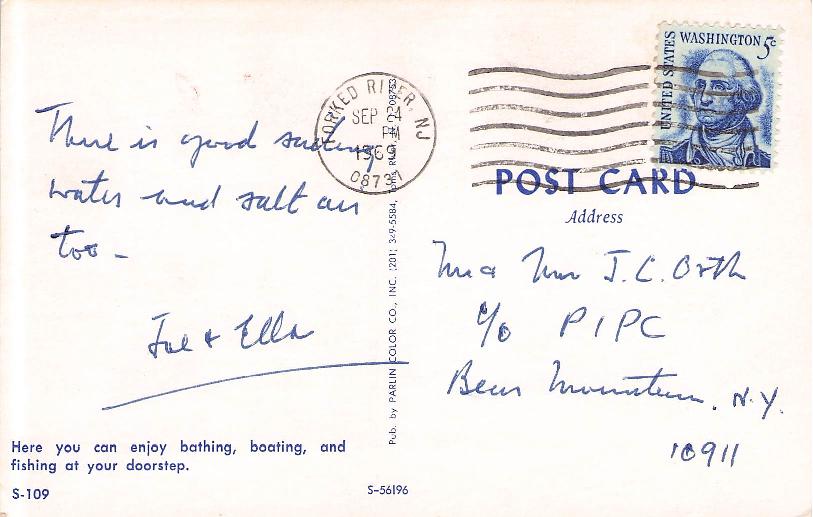 There is good sailing
water and salt air
too -
Joe & Ella
Here you can enjoy bathing, boating, and
fishing at your doorstep.
S-109
FORKED RIVER, NJ
SEP 24
PM
1969
08731
Pub. by PARLIN COLOR CO., INC. (201) 349-5584, Toms River, N.J. 08753
S-56196
UNITED STATES
WASHINGTON 5c
POST CARD
Address
Mr & Mrs J. C. Orth
c/o PIPC
Bear Mountain, N.Y.
10911